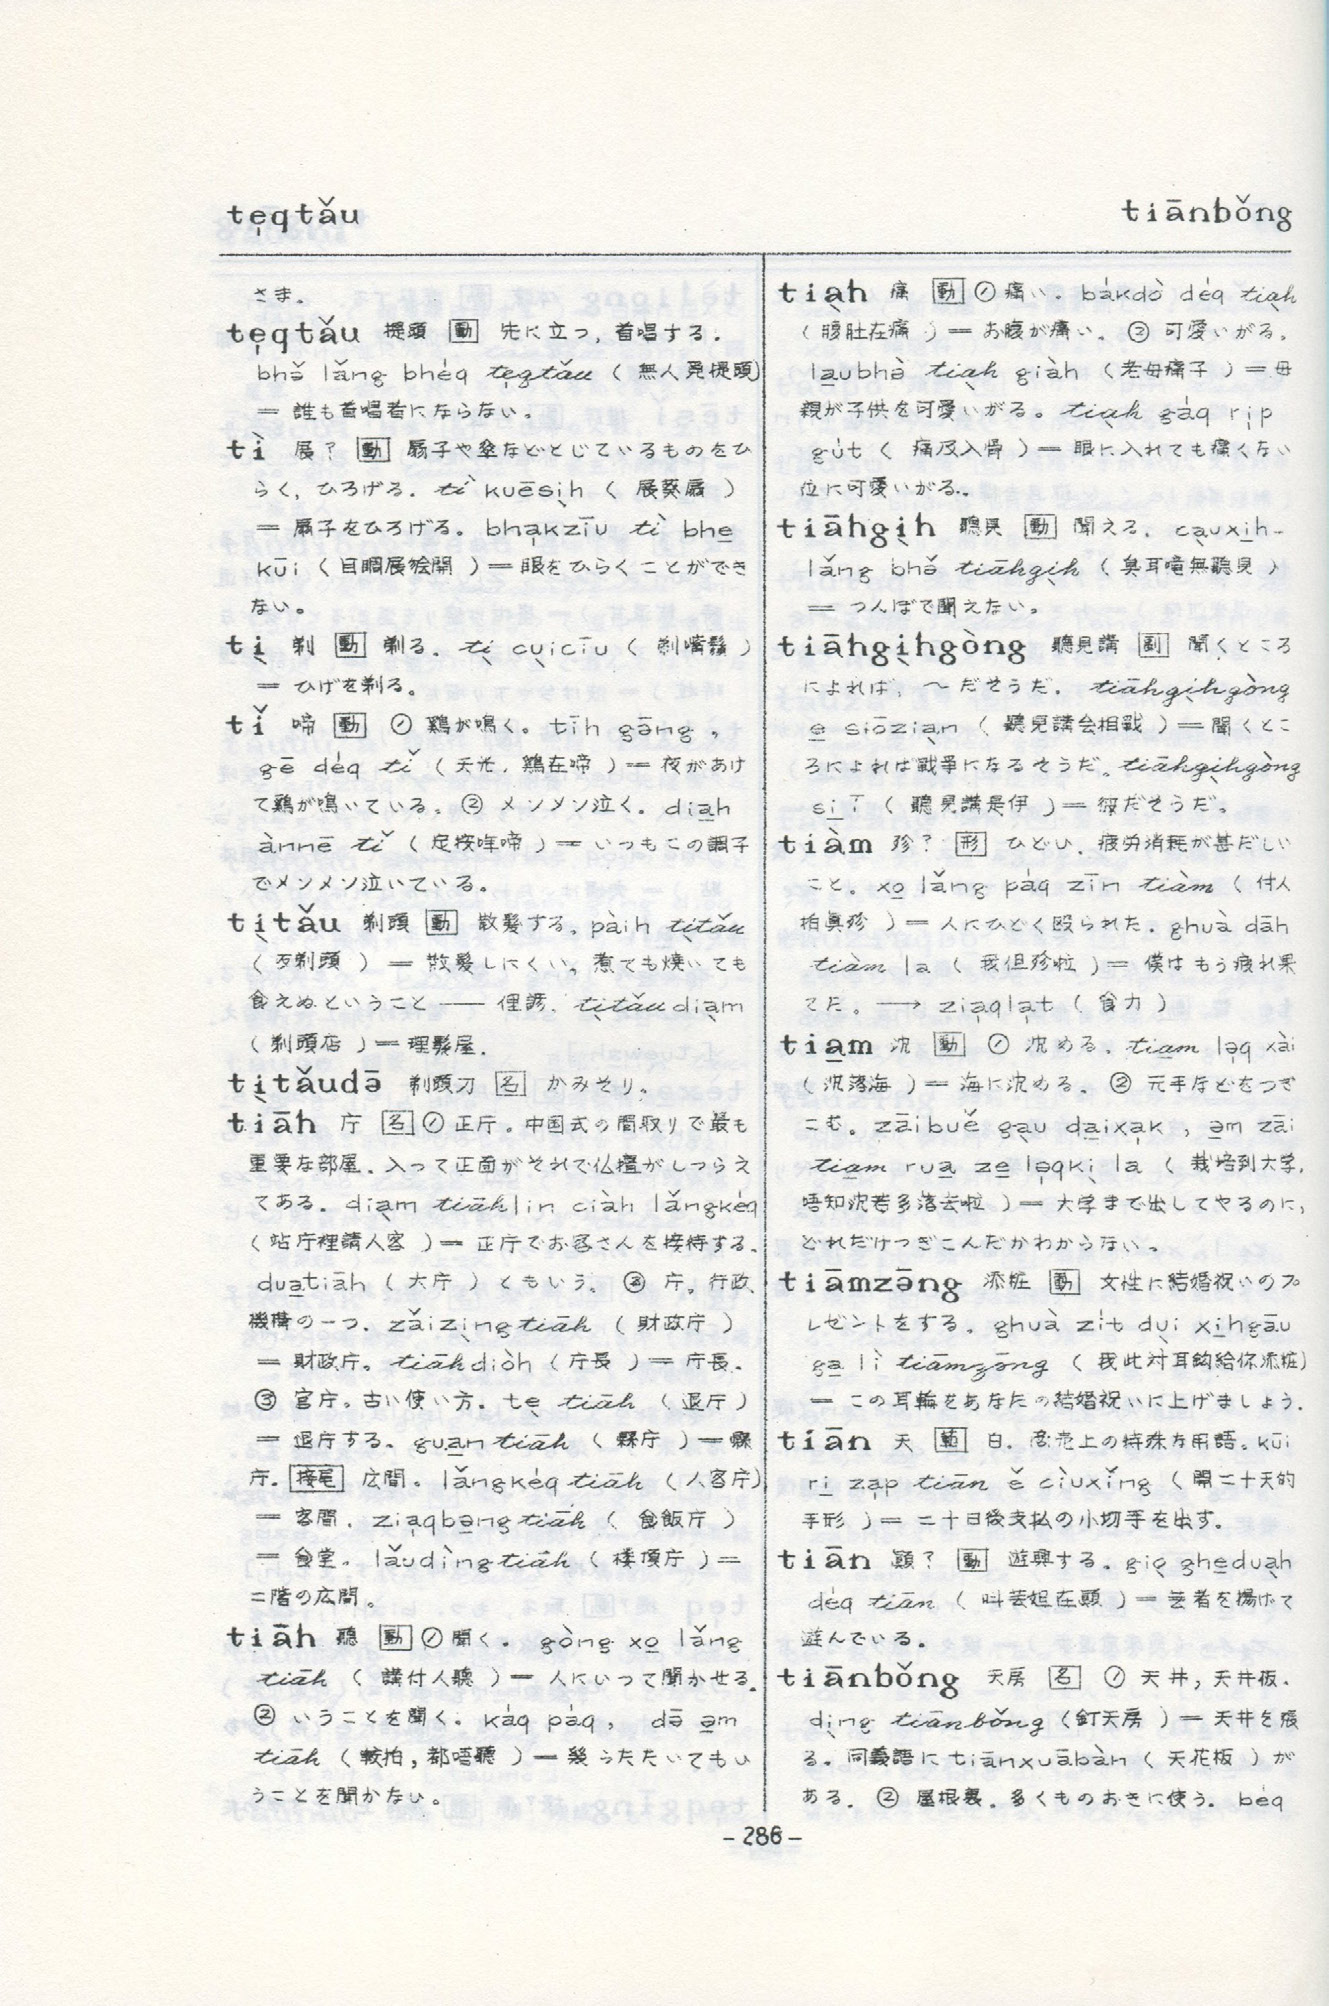 tẹqtǎu
tiānbǒng
さま。
tẹqtǎu 提頭 動 先に立つ，首唱する．
bhə̌ lǎng bhéq tẹqtǎu（無人覔提頭）
＝ 誰も首唱者にならない。
tì 展？ 動 扇子や傘などとじているものをひ
らく，ひろげる．tì kuēsịh（展葵扇）
＝ 扇子をひろげる。bhạkzīu tì bhe̲
kūi（目睭展獪開）＝ 眼をひらくことができ
ない。
tị 剃 動 剃る．tị cụicīu（剃嘴鬚）
＝ ひげを剃る。
tǐ 啼 動 ① 鶏が鳴く。tīh gə̄ng，
gē déq tǐ（天光，鶏在啼）＝ 夜があけ
て鶏が鳴いている。② メンメン泣く．dia̲h
ànnē tǐ（定按哖啼）＝ いつもこの調子
でメンメン泣いている。
tịtǎu 剃頭 動 散髪する。pàih tịtǎu
（歹剃頭）＝ 散髪しにくい，煮ても焼いても
食えぬということ —— 俚諺．tịtǎudiạm
（剃頭店）＝ 理髪屋．
tịtǎudə̄ 剃頭刀 名 かみそり。
tiāh 庁 名 ① 正庁。中国式の間取りで最も
重要な部屋．入って正面がそれで仏壇がしつらえ
てある．diạm tiāhlin ciàh lǎngkéq
（站庁裡請人客）＝ 正庁でお客さんを接待する．
dua̲tiāh（大庁）ともいう。② 庁。行政
機構の一つ．zǎizịngtiāh（財政庁）
＝ 財政庁。tiāhdiòh（庁長）＝ 庁長．
③ 官庁。古い使い方。tẹ tiāh（退庁）
＝ 退庁する。gua̲ntiāh（縣庁）＝ 縣
庁．接尾 広間。lǎngkéqtiāh（人客庁）
＝ 客間．ziạqbə̲ngtiāh（食飯庁）
＝ 食堂。lǎudìngtiāh（楼頂庁）＝
二階の広間。
tiāh 聽 動 ① 聞く。gòng xo̲ lǎng
tiāh（講付人聽）＝ 人にいって聞かせる．
② いうことを聞く。káq páq，də̄ ə̲m
tiāh（較拍，都唔聽）＝ 幾らたたいてもい
うことを聞かない。
tiạh 痛 動 ① 痛い．bákdò déq tiạh
（腹肚在痛）＝ お腹が痛い．② 可愛いがる．
la̲ubhə̀ tiạh giàh（老母痛子）＝ 母
親が子供を可愛いがる。tiạh gáq rịp
gút（痛及入骨）＝ 眼に入れても痛くない
位に可愛いがる．
tiāhgịh 聽見 動 聞える．cạuxi̲h-
lǎng bhə̌ tiāhgịh（臭耳聾無聽見）
＝ つんぼで聞えない。
tiāhgịhgòng 聽見講 副 聞くところ
によれば，〜だそうだ．tiāhgịhgòng
e̲ siōziạn（聽見講会相戰）＝ 聞くとこ
ろによれば戦爭になるそうだ。tiāhgịhgòng
si̲ ī（聽見講是伊）＝ 彼だそうだ。
tiàm 殄？ 形 ひどい．疲労消耗が甚だしい
こと。xo̲ lǎng páq zīn tiàm（付人
拍真殄）＝ 人にひどく殴られた．ghuà dāh
tiàm la（我但殄啦）＝ 僕はもう疲れ果
てた。⟶ ziạqlạt（食力）
tia̲m 沈 動 ① 沈める．tia̲m lə̣q xài
（沈落海）＝ 海に沈める。② 元手などをつぎ
こむ。zāibuě gạu da̲ixạk，ə̲m zāi
tia̲m rua̲ ze̲ lə̣qkị la（栽培到大学，
唔知沈若多落去啦）＝ 大学まで出してやるのに，
どれだけつぎこんだかわからない。
tiāmzə̄ng 添粧 動 女性に結婚祝いのプ
レゼントをする。ghuà zít dụi xi̲hgāu
ga̲ lì tiāmzə̄ng（我此対耳鈎給你添粧）
＝ この耳輪をあなたの結婚祝いに上げましょう．
tiān 天 範 日．商売上の特殊な用語。kūi
ri̲ zạp tiān ě ciùxǐng（開二十天的
手形）＝ 二十日後支払の小切手を出す。
tiān 顚？ 動 遊興する．giọ ghe̲duạh
déq tiān（叫芸妲在顚）＝ 芸者を揚げて
遊んでいる。
tiānbǒng 天房 名 ① 天井，天井板．
dịng tiānbǒng（釘天房）＝ 天井を張
る。同義語に tiānxuābàn（天花板）が
ある．② 屋根裏．多くものおきに使う．béq
- 286 -